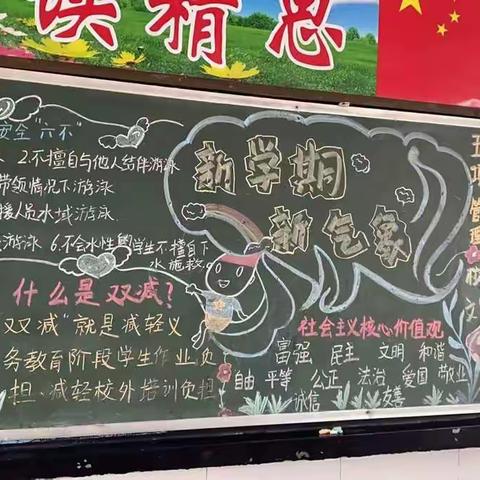 读精思
安全"六不"
2.不擅自与他人结伴游泳
带领情况下游泳
援人员水域游泳
游泳 6.不会水性的学生不擅自下
水施救
什么是双减?
"双减"就是减轻义
务教育阶段学生作业负
担、减轻校外培训负担
新学期
新气象
社会主义核心价值观
富强 民主 文明 和谐
自由 平等 公正 法治 爱国 敬业
诚信 友善
五项管理